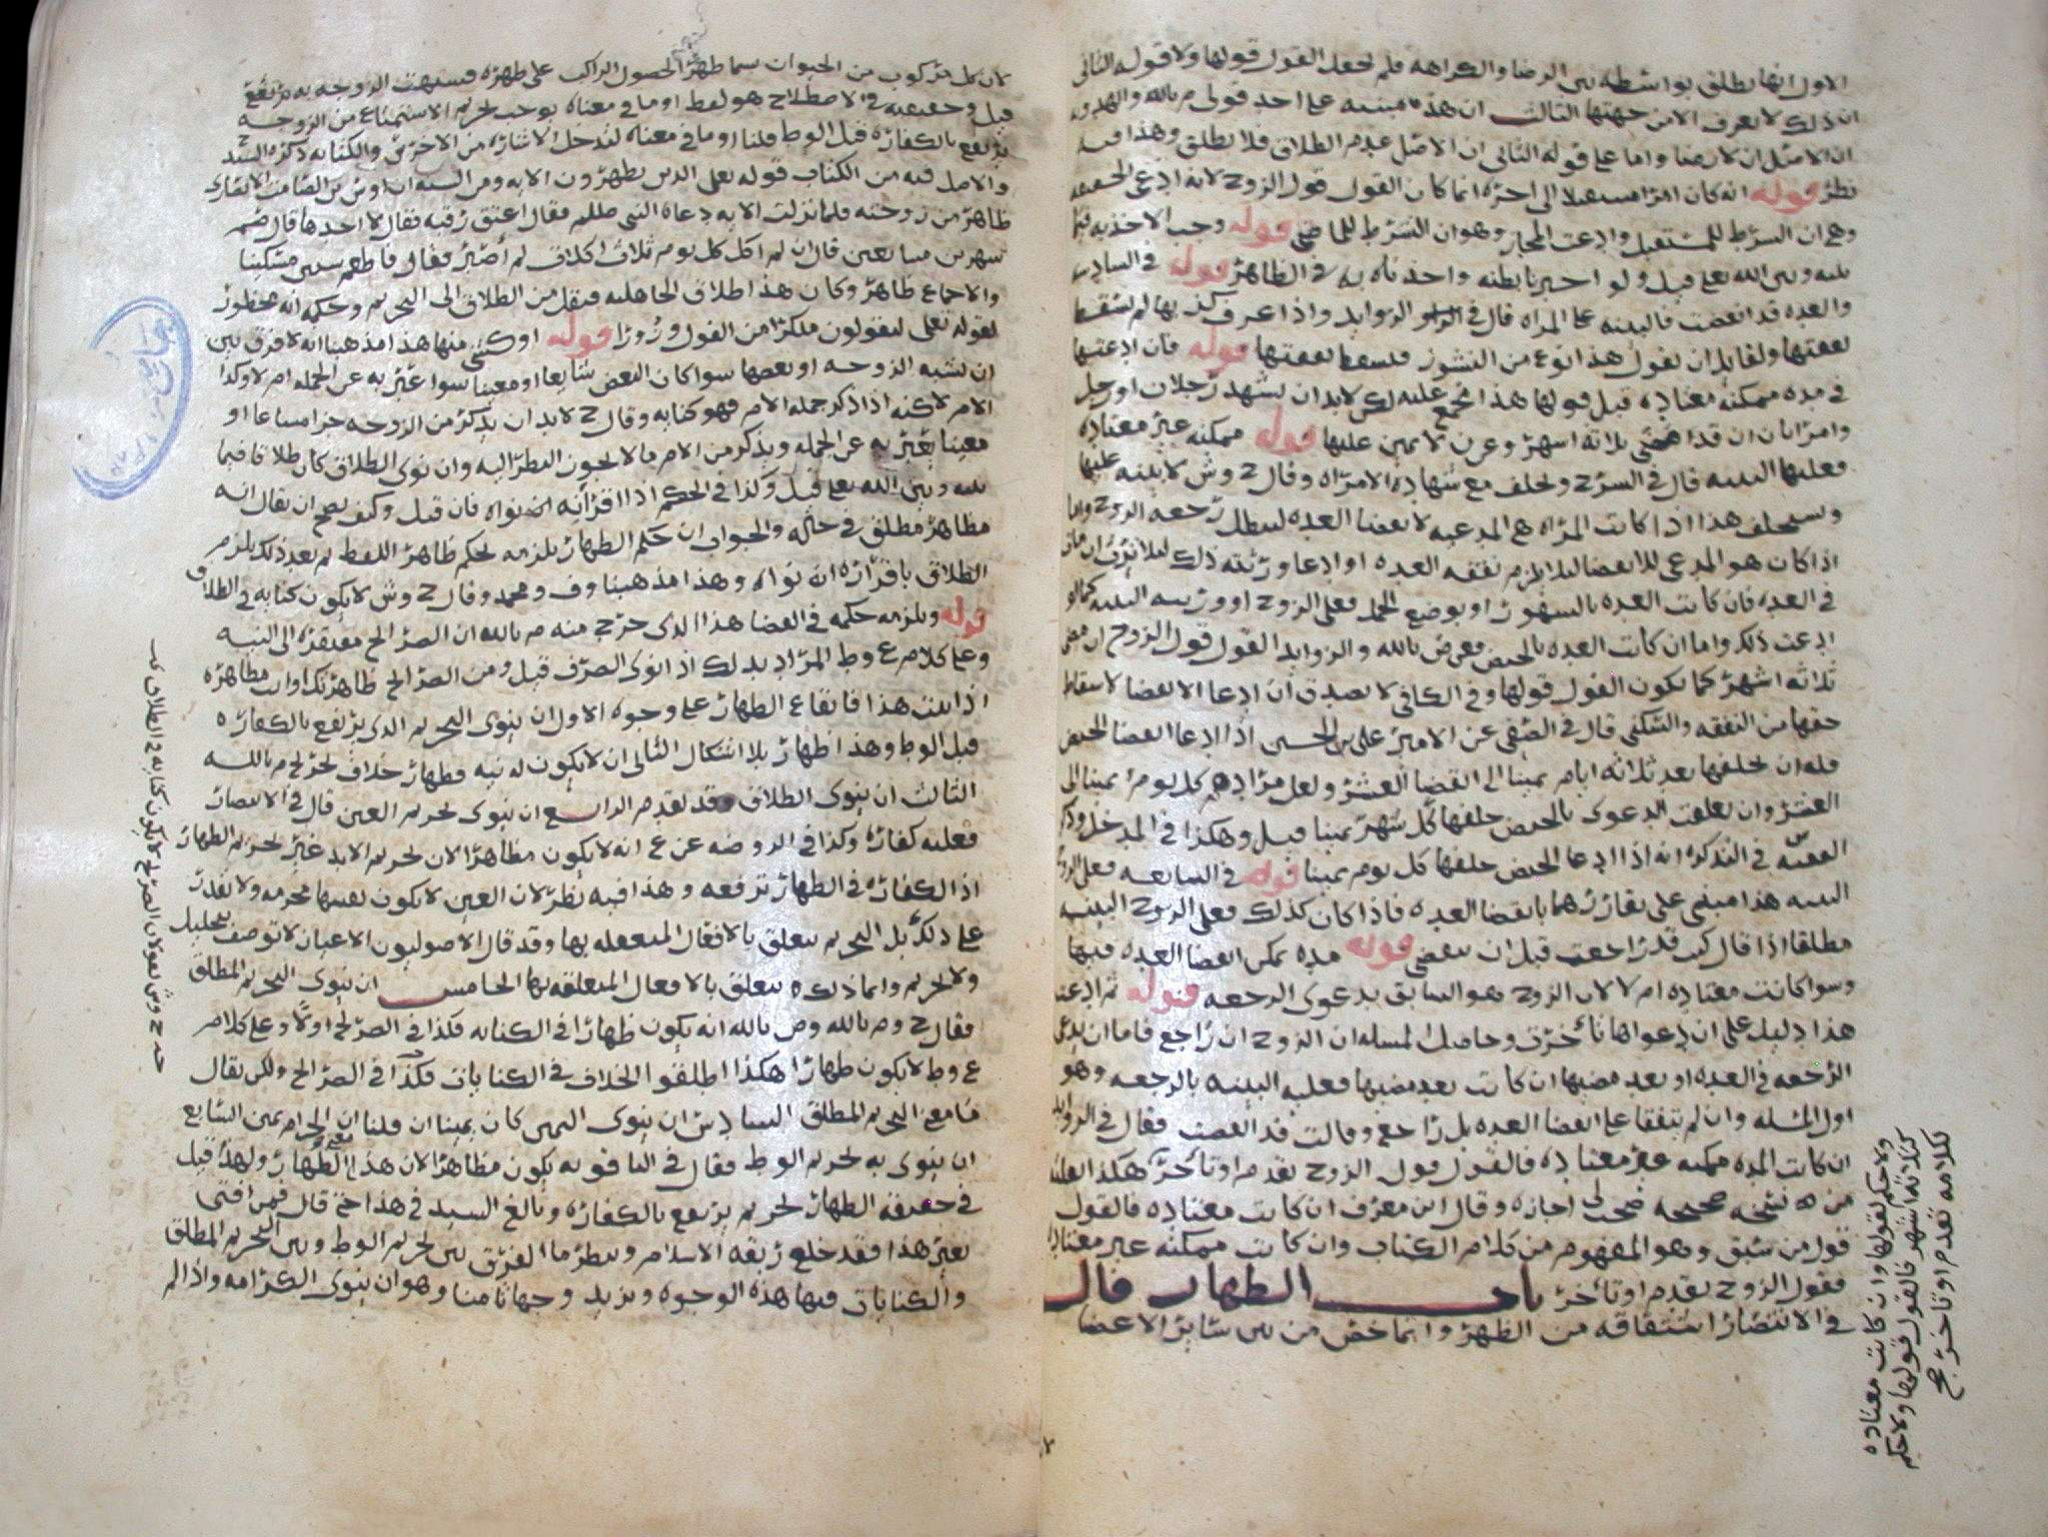 الاول انها تطلق بواسطه بين الرضا والكراهه فلم تجعل القول قولها ولا قوله الثاني
ان ذلك لا يعرف الا من جهتها الثالث ان هذه مبنيه على احد قولي م بالله
ان الاصل ان لا رضا واما على قوله الثاني ان الاصل عدم الطلاق فلا تطلق وهذا فيه
نظر قوله انه كان امرا مستقبلا الى اخره انما كان القول قول الزوج لانه ادعى الحقيقه
وهي ان الشرط للمستقبل وادعت المجاز وهو ان الشرط للماضي قوله وجب الاخذ به فيما
بينه وبين الله تعالى قيل ولو اخبر نا بطنه واخذناه به في الظاهر قوله في السادس
والعده قد انقضت فالبينه على المراه قال في الزوايد واذا عرف كذبها لم تسقط
نفقتها ولقايل ان يقول هذا نوع من النشوز فتسقط نفقتها قوله فان ادعتها
في مده ممكنه معتاده قبل قولها هذا مجمع عليه لكن لابد ان يشهد رجلان او رجل
وامراتان ان قد مضى ثلاثه اشهر وعرف لا يمين عليها قوله ممكنه غير معتاده
فعليها البينه قال في الشرح وتحلف مع شهاده الامراه وقال ح وش لا بينه عليها
وتستحلف هذا اذا كانت المراه هي المدعيه لانقضا العده ليبطل رجعه الزوج واما
اذا كان هو المدعي للانقضا ليلا تلزم نفقه العده او ادعا ورثته ذلك ليلا ترث ان مات
في العده فان كانت العده بالشهور او بوضع الحمل فعلى الزوج او ورثته البينه كما لو
ادعت ذلك واما ان كانت العده بالحيض فعرض بالله والزوايد القول قول الزوج ان مضى
ثلاثه اشهر كما يكون القول قولها وفي الكافي لا يصدق ان ادعا الانقضا لاسقاط
حقها من النفقه والسكنى قال في الصفي عن الامير علي بن الحسين اذا ادعا انقضا الحيض
فله ان يحلفها بعد ثلاثه ايام يمينا الى انقضا العشر ولعل مراده كل يوم يمينا الى
العشر وان تعلقت الدعوى بالحيض حلفها كل شهر يمينا قيل وهكذا في المدخل وذكر
الفقيه س في التذكره انه اذا ادعا الحيض حلفها كل يوم يمينا قوله في السابعه فعلى الزوج
البينه هذا مبني على تقاررهما بانقضا العده فاذا كان كذلك فعلى الزوج البينه
مطلقا اذا قال كنت قد راجعت قبل ان تنقضي قوله مده يمكن انقضا العده فيها
وسوا كانت معتاده ام لا لان الزوج هو السابق بدعوى الرجعه قوله ثم ادعت
هذا دليل على ان دعواها تاخرت وحاصل المسله ان الزوج ان راجع فاما ان يدعي
الرجعه في العده او بعد مضيها ان كانت بعد مضيها فعليه البينه بالرجعه وهو
اول المسله وان لم يتفقا على انقضا العده بل راجع وقالت قد انقضت فقال في الزوايد
ان كانت المده ممكنه غير معتاده فالقول قول الزوج تقدم او تاخر هكذا
من نسخه صحيحه وقال ابن معرف ان كانت معتاده فالقول
قول من سبق وهو المفهوم من كلام الكتاب وان كانت ممكنه غير معتاده
فقول الزوج تقدم او تاخر باب الظهار قال
في الانتصار اشتقاقه من الظهر وانما خص من بين ساير الاعضا
ولا حكم لقولها وان كانت معتاده
كثلاثه اشهر فالقول قولها ولا حكم
لكلامه تقدم او تاخر صح
لان كل مركوب من الحيوان يسما ظهرا لحصول الراكب على ظهره فشبهت الزوجه به
قيل وحقيقته في الاصطلاح هو لفظ او ما في معناه يوجب تحريم الاستمتاع من الزوجه
يرتفع بالكفاره قبل الوطء قلنا او ما في معناه لتدخل الاشاره من الاخرس والكتابه ذكره السيد ح
والاصل فيه من الكتاب قوله تعالى الذين يظهرون الايه ومن السنه ان اوس بن الصامت الانصاري
ظاهر من زوجته فلما نزلت الايه دعاه النبي صلعم فقال اعتق رقبه فقال لا اجدها قال صم
شهرين متتابعين قال ان لم اكل كل يوم ثلاث اكلات لم اصبر فقال فاطعم ستين مسكينا
والاجماع ظاهر وكان هذا طلاق الجاهليه فنقل من الطلاق الى التحريم وحكمه انه محظور
لقوله تعالى ليقولون منكرا من القول وزورا قوله او كشي منها هذا مذهبنا انه لا فرق بين
ان يشبه الزوجه او بعضها سوا كان البعض شايعا او معينا سوا عبر به عن الجمله ام لا وكذا
الام لاكنه اذا ذكر جمله الام فهو كنايه وقال ح لابد ان يذكر من الزوجه جزا مشاعا او
معينا يعبر به عن الجمله ويذكر من الام ما لا يجوز النظر اليه وان نوى الطلاق كان طلاقا فيما
بينه وبين الله تعالى قيل وكذا في الحكم اذا اقر انه نواه فان قيل وكيف يصح ان يقال انه
مظاهر مطلق في حاله والجواب ان حكم الظهار يلزمه بحكم ظاهر اللفظ ثم بعد ذلك يلزم
الطلاق باقراره ان نواه وهذا مذهبنا وف ومحمد وقال ح وش لا يكون كنايه في الطلاق
قوله ويلزمه حكمه في القضا هذا الذي خرج منه م بالله ان الصرايح مفتقره الى النيه
وعلى كلام ع وط المراد بذلك اذا نوى الصرف قيل ومن الصرايح ظاهرتك او انت مظاهره
اذا ثبت هذا فايقاع الظهار على وجوه الاول ان ينوى التحريم الذي يرتفع بالكفاره
قبل الوطء وهذا ظهار بلا اشكال الثاني ان لا يكون له نيه فظهار خلاف تخريج م بالله
الثالث ان ينوى الطلاق وقد تقدم الرابع ان ينوى تحريم العين قال في الانتصار
فعليه كفاره وكذا في الروضه عن ع انه لا يكون مظاهرا لان تحريم الابد غير تحريم الظهار
اذ الكفاره في الظهار ترفعه وهذا فيه نظر لان العين لا يكون نفسها محرمه ولا تقدر
على ذلك بل التحريم يتعلق بالافعال المتعلقه بها وقد قال الاصوليون الاعيان لا توصف بتحليل
ولا تحريم وانما ذلك يتعلق بالافعال المتعلقه بها الخامس ان ينوى التحريم المطلق
فقال ح وم بالله وص بالله انه يكون ظهارا في الكنايه فكذا في الصريح اولا وعلى كلام
ع وط لا يكون ظهارا هكذا اطلقوا الخلاف في الكنايات فكذا في الصرايح ولكن يقال
فما معنى التحريم المطلق السادس ان ينوى اليمين كان يمينا ان قلنا ان الحرام يمين السابع
ان ينوى به تحريم الوطء فقال في الياقوته يكون مظاهرا لان هذا معنى الظهار ولهذا قيل
في حقيقه الظهار تحريم يرتفع بالكفاره وبالغ السيد في هذا حتى قال فمن افتى
بغير هذا فقد خلع ربقه الاسلام وينظر ما الفرق بين تحريم الوطء وبين التحريم المطلق
والكنايات فيها هذه الوجوه ويزيد وجها ثامنا وهو ان ينوى الكرامه واذا لم
حه ح وش يقولان الصريح لا يكون كنايه في الطلاق